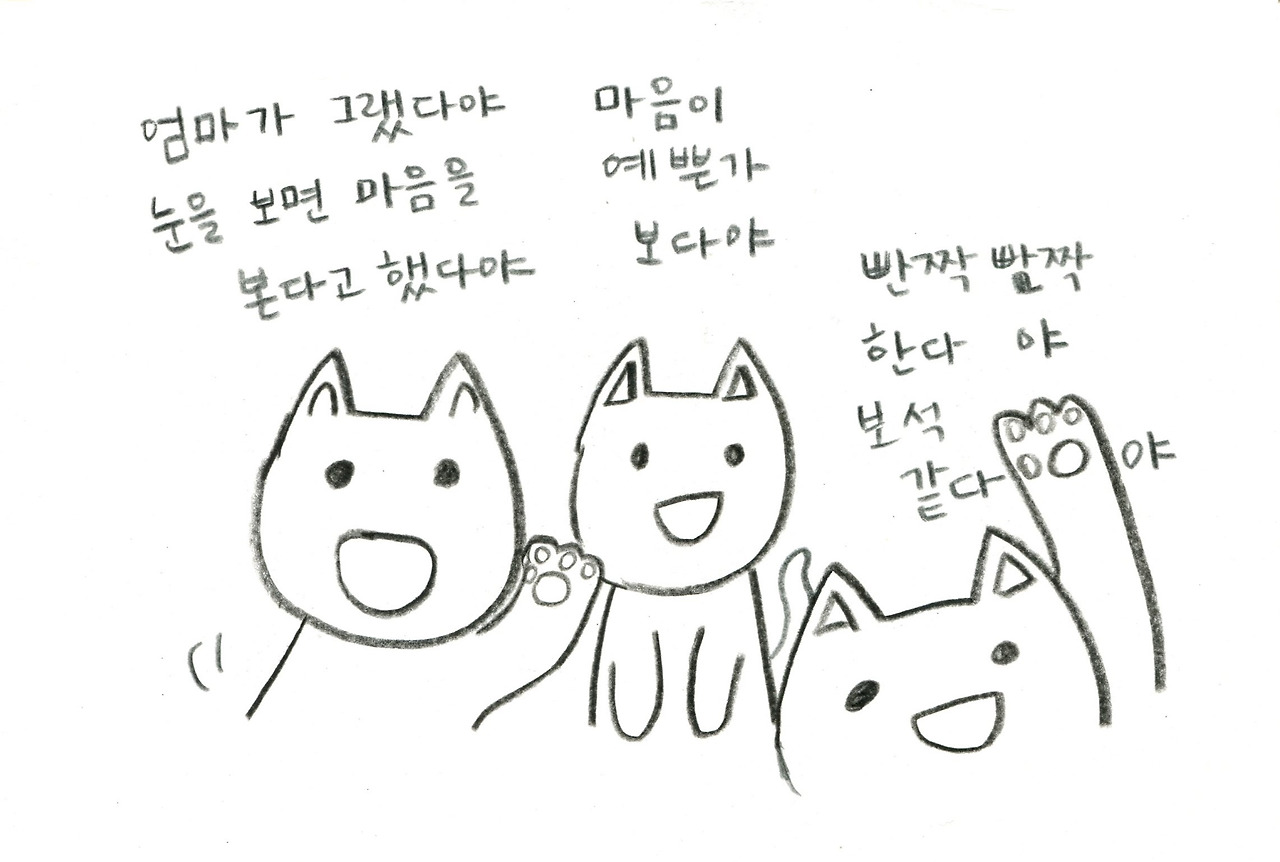 엄마가 그랬다야
눈을 보면 마음을
본다고 했다야
마음이
예쁜가
보다야
빤짝 빨짝
한다 야
보석
같다 야